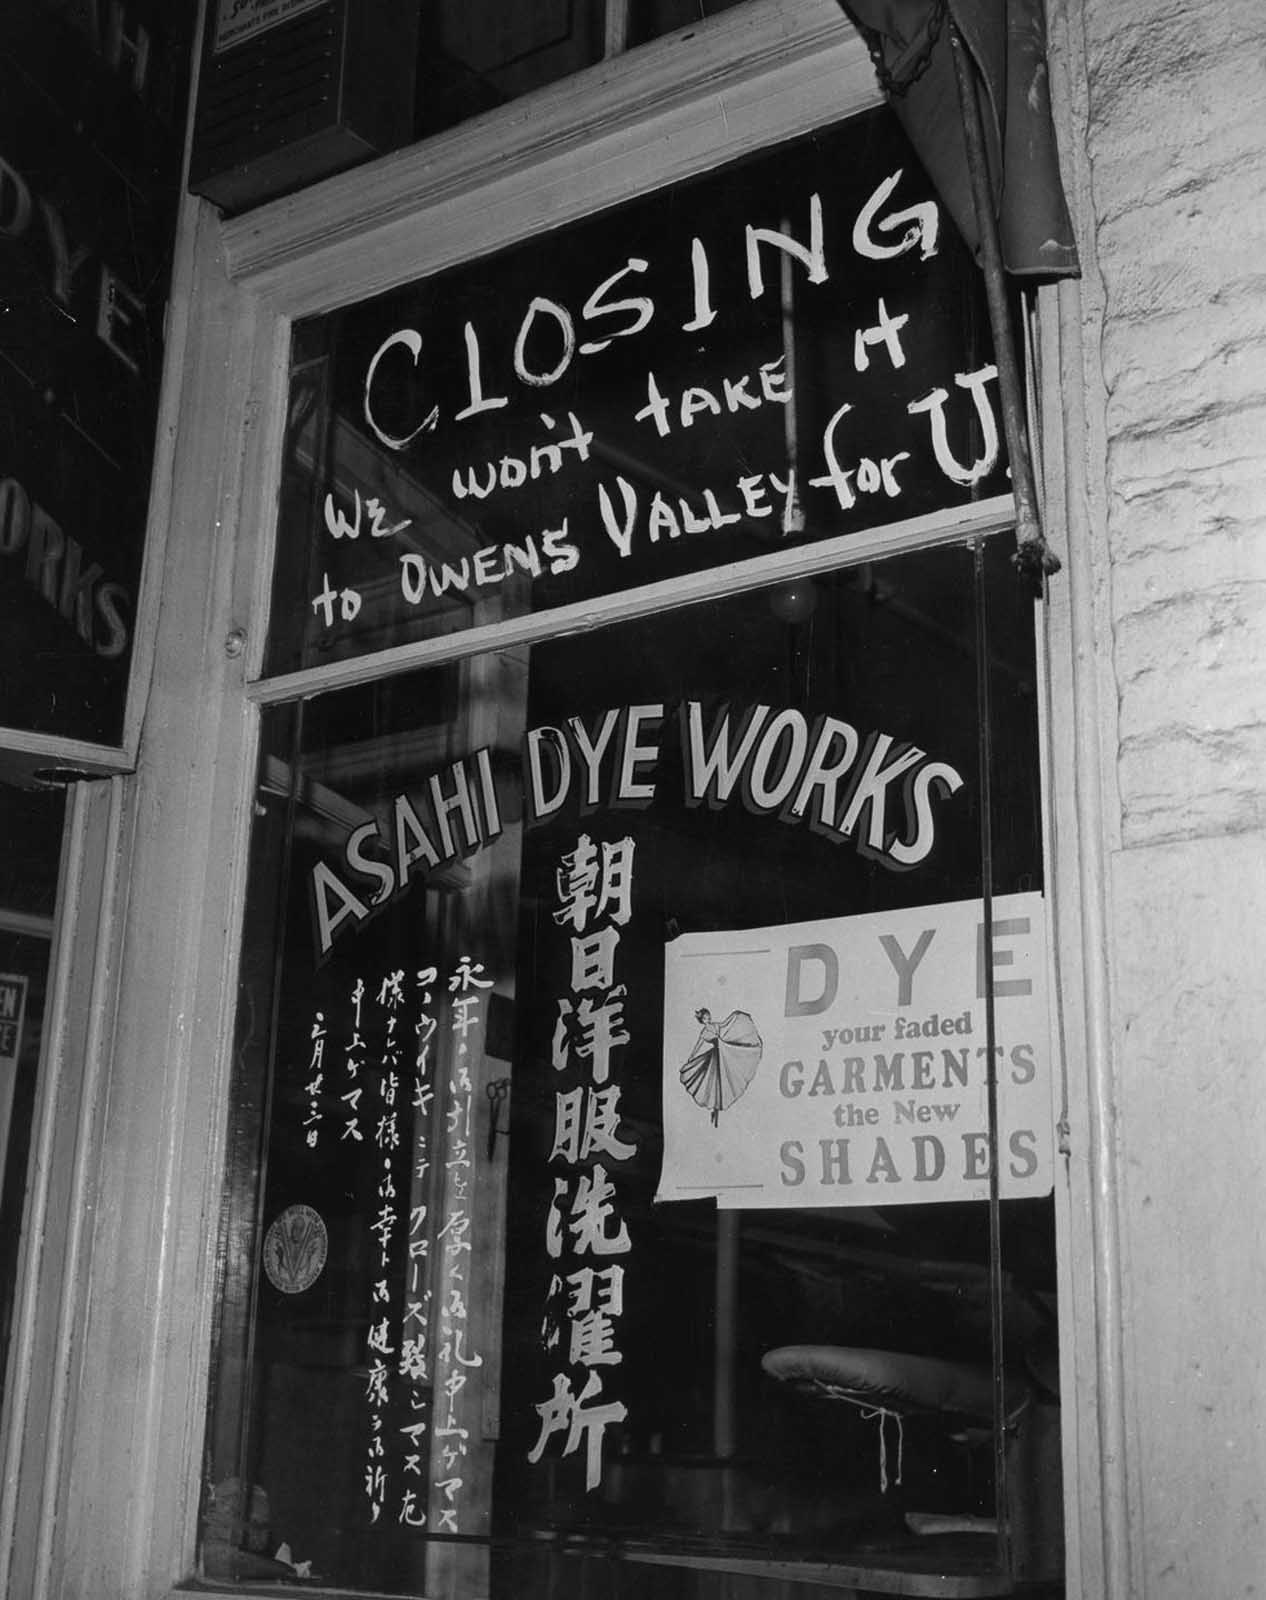 DYE
ORKS
CLOSING
WE won't TAKE it
to OWENS VALLEY for U.
ASAHI DYE WORKS
朝日洋服洗濯所
DYE
your faded
GARMENTS
the New
SHADES
永年ノ御引立ヲ厚ク御礼申上ゲマス
コノウイキニテクローズ致シマス左
様ナレバ皆様ノ御幸ト御健康ヲ御祈リ
申上ゲマス
三月廿三日